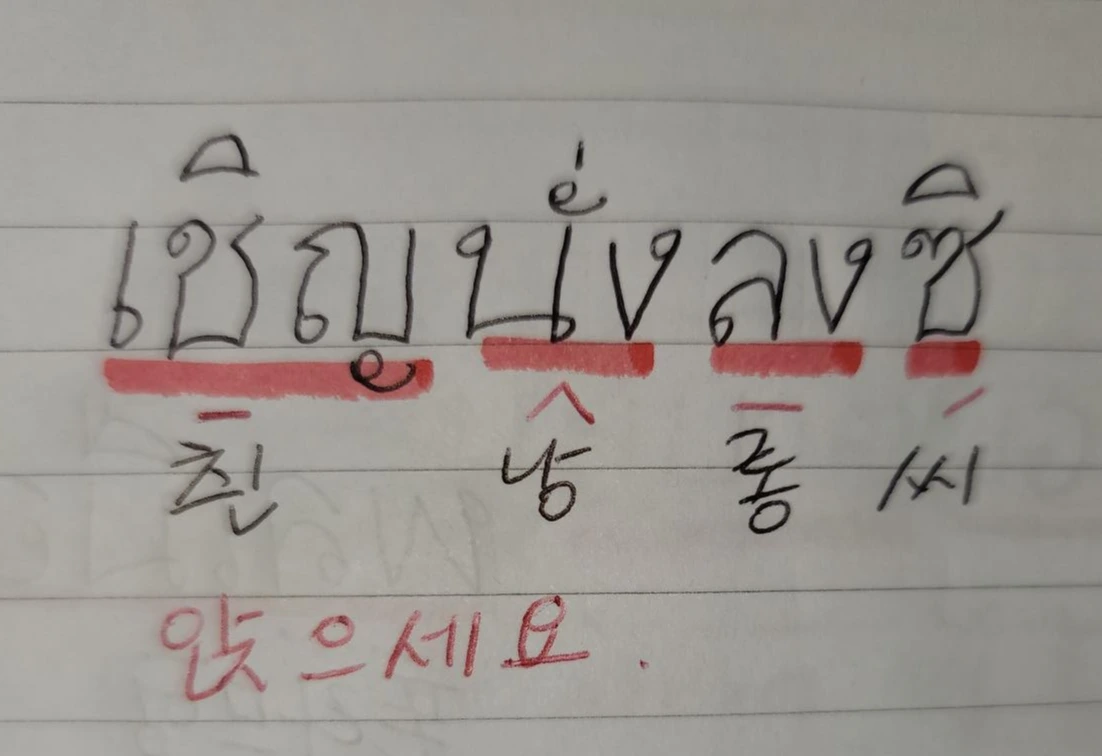 เชิญ นั่ง ลง ซิ
친 낭 롱 씨
앉으세요.